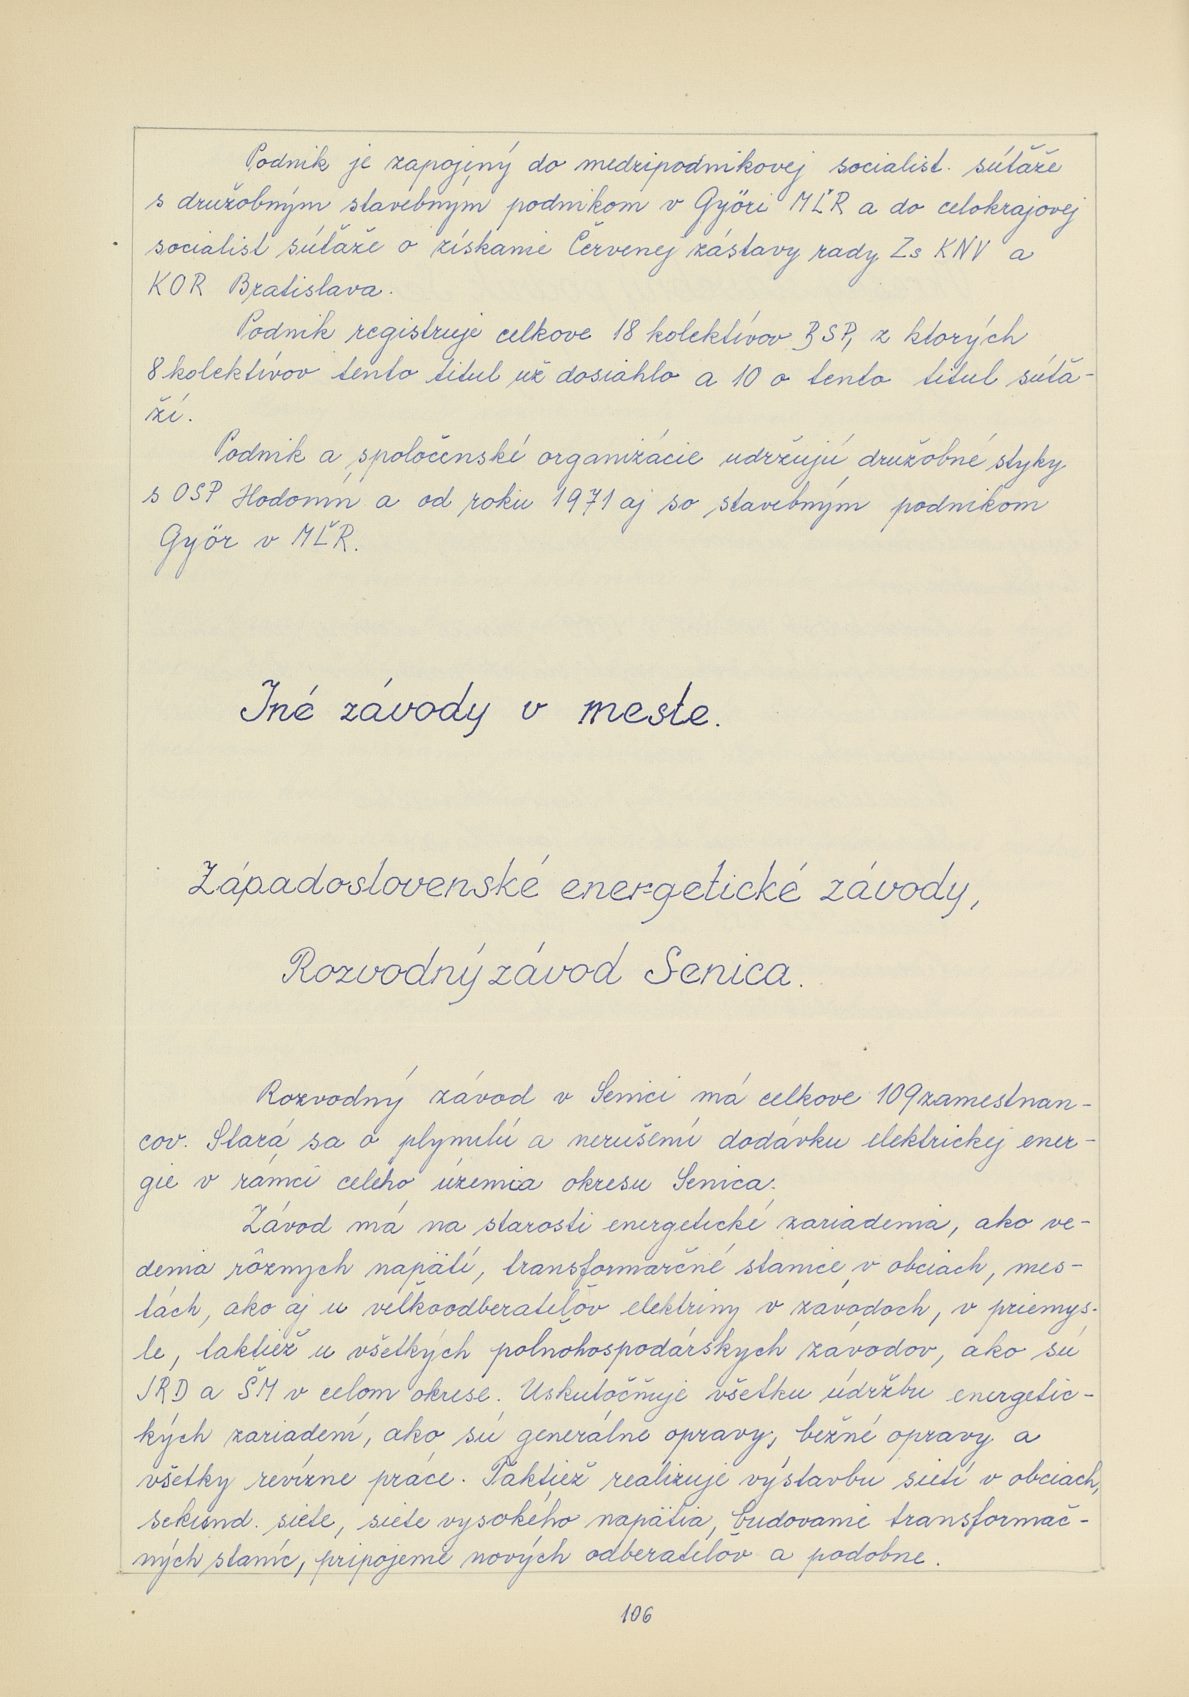 Podnik je zapojený do medzipodnikovej socialist. súťaže
s družobným stavebným podnikom v Györi MĽR a do celokrajovej
socialist súťaže o získanie Červenej zástavy rady Zs KNV a
KOR Bratislava.
Podnik registruje celkove 18 kolektívov BSP, z ktorých
8 kolektívov tento titul už dosiahlo a 10 o tento titul súťa-
ží.
Podnik a spoločenské organizácie udržujú družobné styky
s OSP Hodonín a od roku 1971 aj so stavebným podnikom
Györ v MĽR.
Iné závody v meste.
Západoslovenské energetické závody,
Rozvodný závod Senica.
Rozvodný závod v Senici má celkove 109 zamestnan-
cov. Stará sa o plynulú a nerušenú dodávku elektrickej ener-
gie v rámci celého územia okresu Senica.
Závod má na starosti energetické zariadenia, ako ve-
denia rôznych napätí, transformačné stanice v obciach, mes-
tách, ako aj u veľkoodberateľov elektriny v závodoch, v priemys-
le, taktiež u všetkých poľnohospodárskych závodov, ako sú
JRD a ŠM v celom okrese. Uskutočňuje všetku údržbu energetic-
kých zariadení, ako sú generálne opravy, bežné opravy a
všetky revízne práce. Taktiež realizuje výstavbu sietí v obciach,
sekund. siete, siete vysokého napätia, budovanie transformač-
ných staníc, pripojenie nových odberateľov a podobne.
106